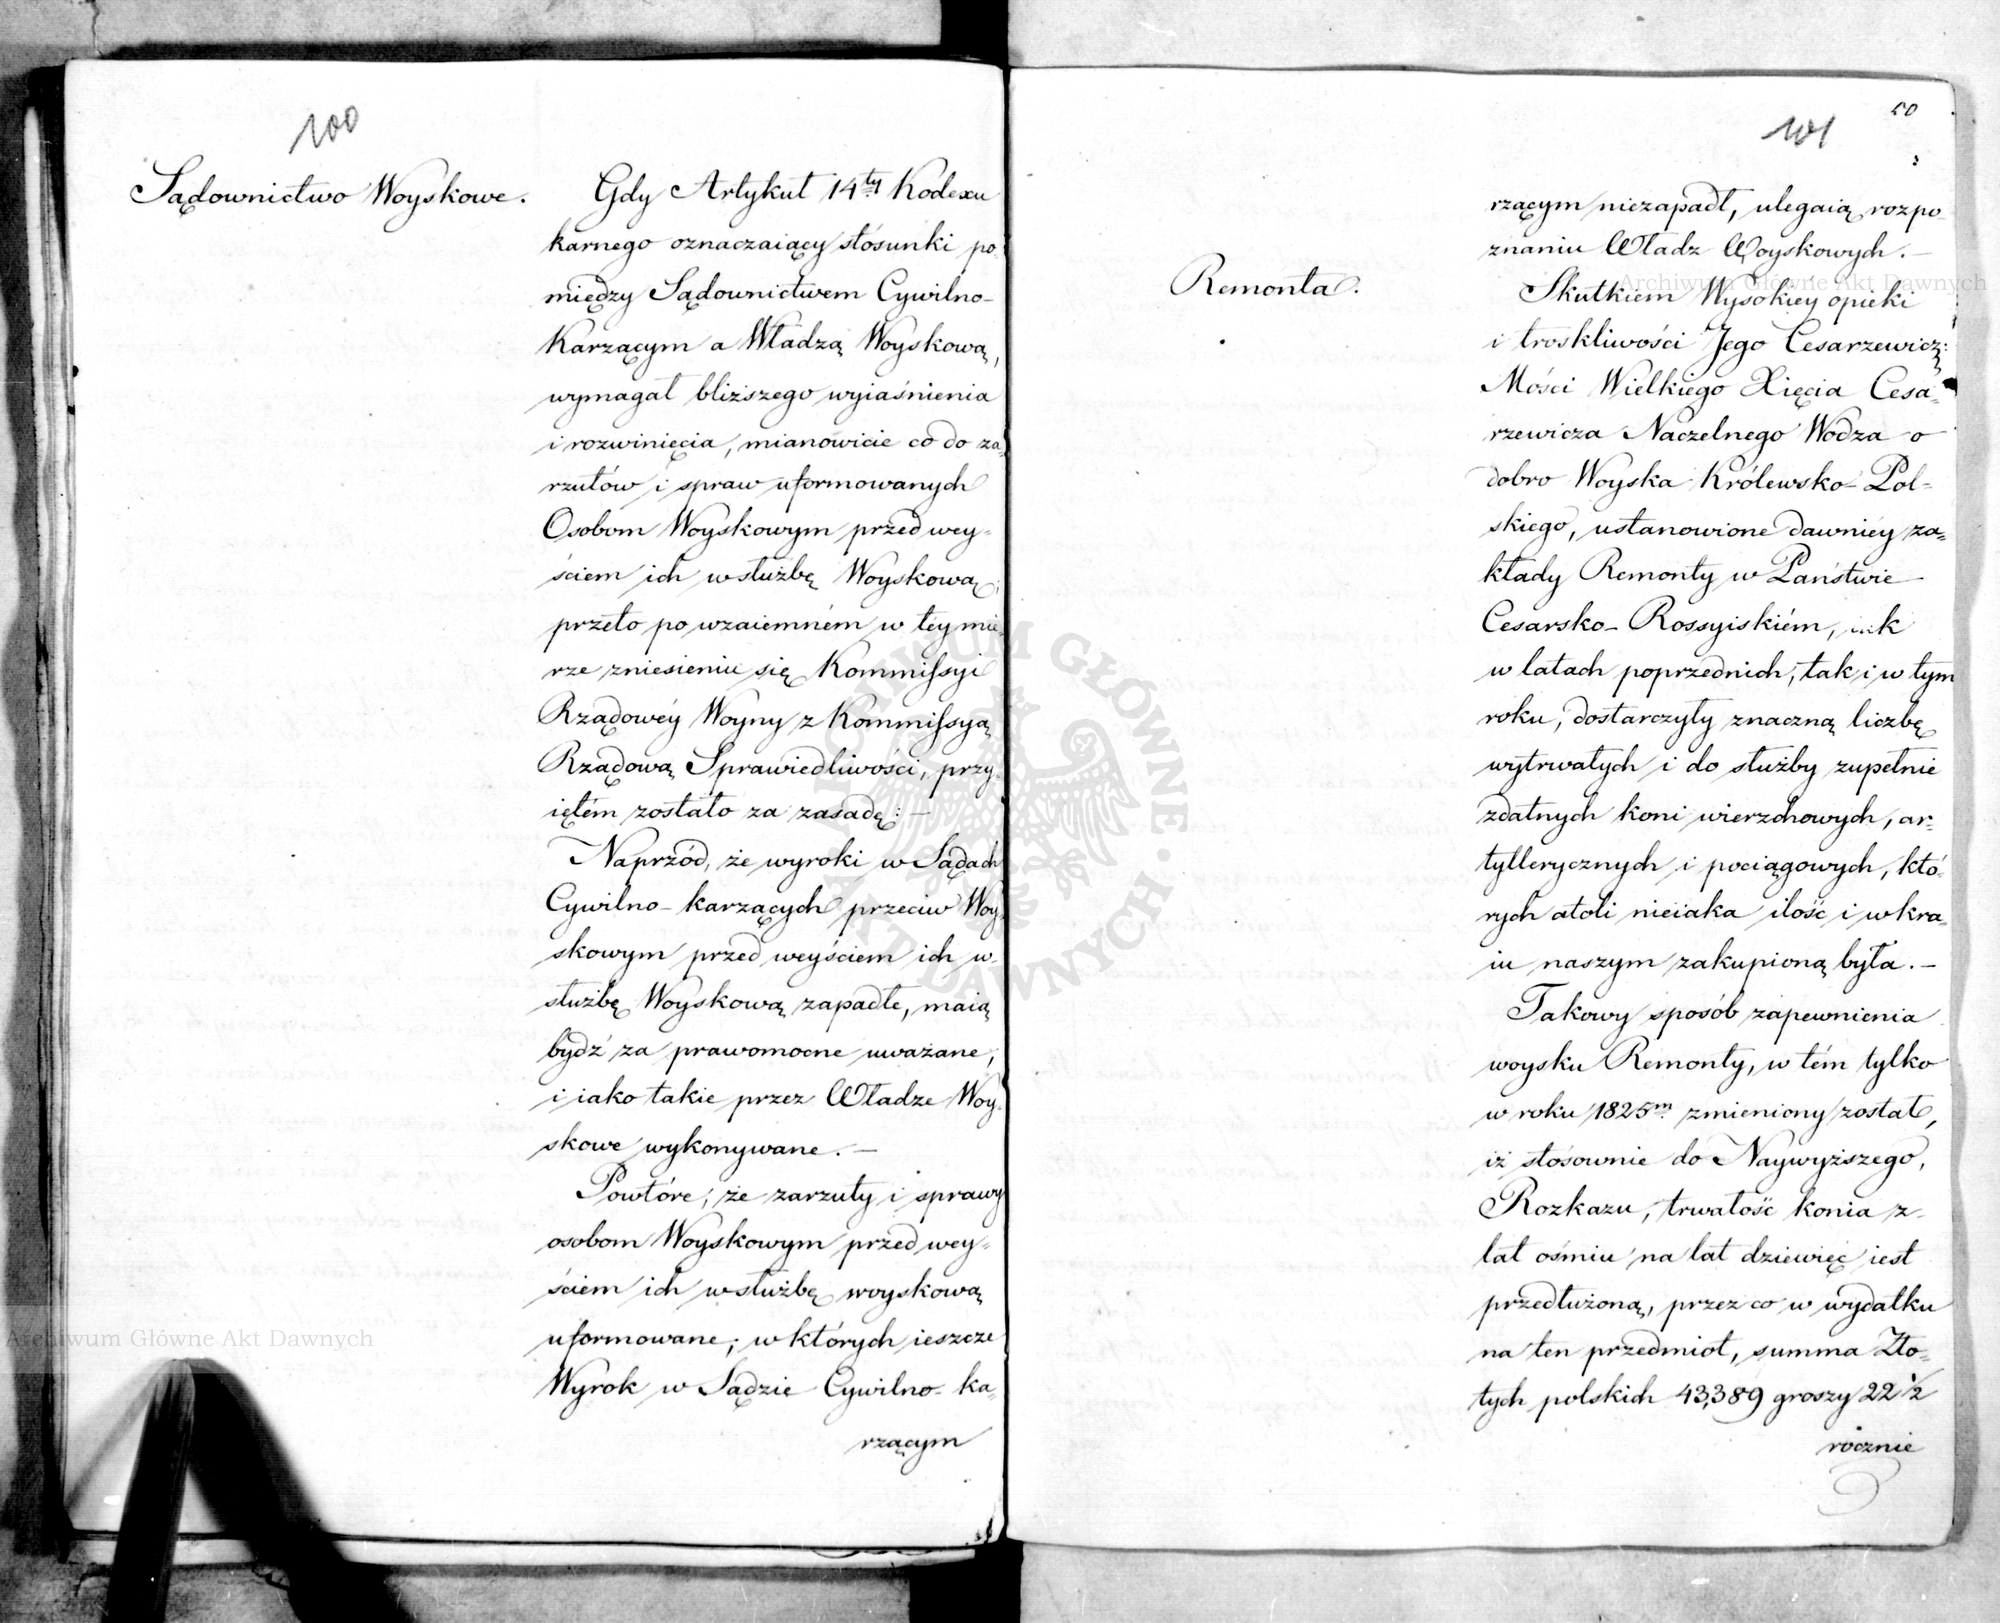 100
Sądownictwo Woyskowe.
Gdy Artykuł 14ty Kodexu
karnego oznaczaiący stósunki po-
między Sądownictwem Cywilno-
Karzącym a Władzą Woyskową,
wymagał bliższego wyiaśnienia
i rozwinięcia, mianowicie co do za-
rzutów i spraw uformowanych
Osobom Woyskowym przed wey-
ściem ich w służbę Woyskową;
przeto po wzaiemném w tey mie-
rze zniesieniu się Kommissyi
Rządowéy Woyny z Kommissyą
Rządową Sprawiedliwości, przy-
iętém zostało za zasadę: —
Naprzód, że wyroki w Sądach
Cywilno-karzących przeciw Woy-
skowym przed weyściem ich w
służbę Woyskową zapadłe, maią
bydź za prawomocne uważane,
i iako takie przez Władze Woy-
skowe wykonywane. —
Powtóre, że zarzuty i sprawy
osobom Woyskowym przed wey-
ściem ich w służbę woyskową
uformowane, w których ieszcze
Wyrok w Sądzie Cywilno-ka-
rzącym
50
101
rzącym niezapadł, ulegaią rozpo-
znaniu Władz Woyskowych. —
Remonta.
Skutkiem Wysokiey opieki
i troskliwości Jego Cesarzewicz:
Mości Wielkiego Xięcia Cesa-
rzewicza Naczelnego Wodza o
dobro Woyska Królewsko-Pol-
skiego, ustanowione dawniéy za-
kłady Remonty w Państwie
Cesarsko-Rossyiskiém, iak
w latach poprzednich, tak i w tym
roku, dostarczyły znaczną liczbę
wytrwałych i do służby zupełnie
zdatnych koni wierzchowych, ar-
tyllerycznych i pociągowych, któ-
rych atoli nieiaka ilość i w kra-
iu naszym zakupioną była. —
Takowy sposób zapewnienia
woysku Remonty, w tém tylko
w roku 1825m zmieniony został,
iż stósownie do Naywyższego
Rozkazu, trwałość konia z
lat ośmiu na lat dziewięć iest
przedłużoną, przez co w wydatku
na ten przedmiot, summa Zło-
tych polskich 43,389 groszy 22 1/2
rocznie
Archiwum Główne Akt Dawnych
Archiwum Główne Akt Dawnych
ARCHIWUM GŁÓWNE AKT DAWNYCH